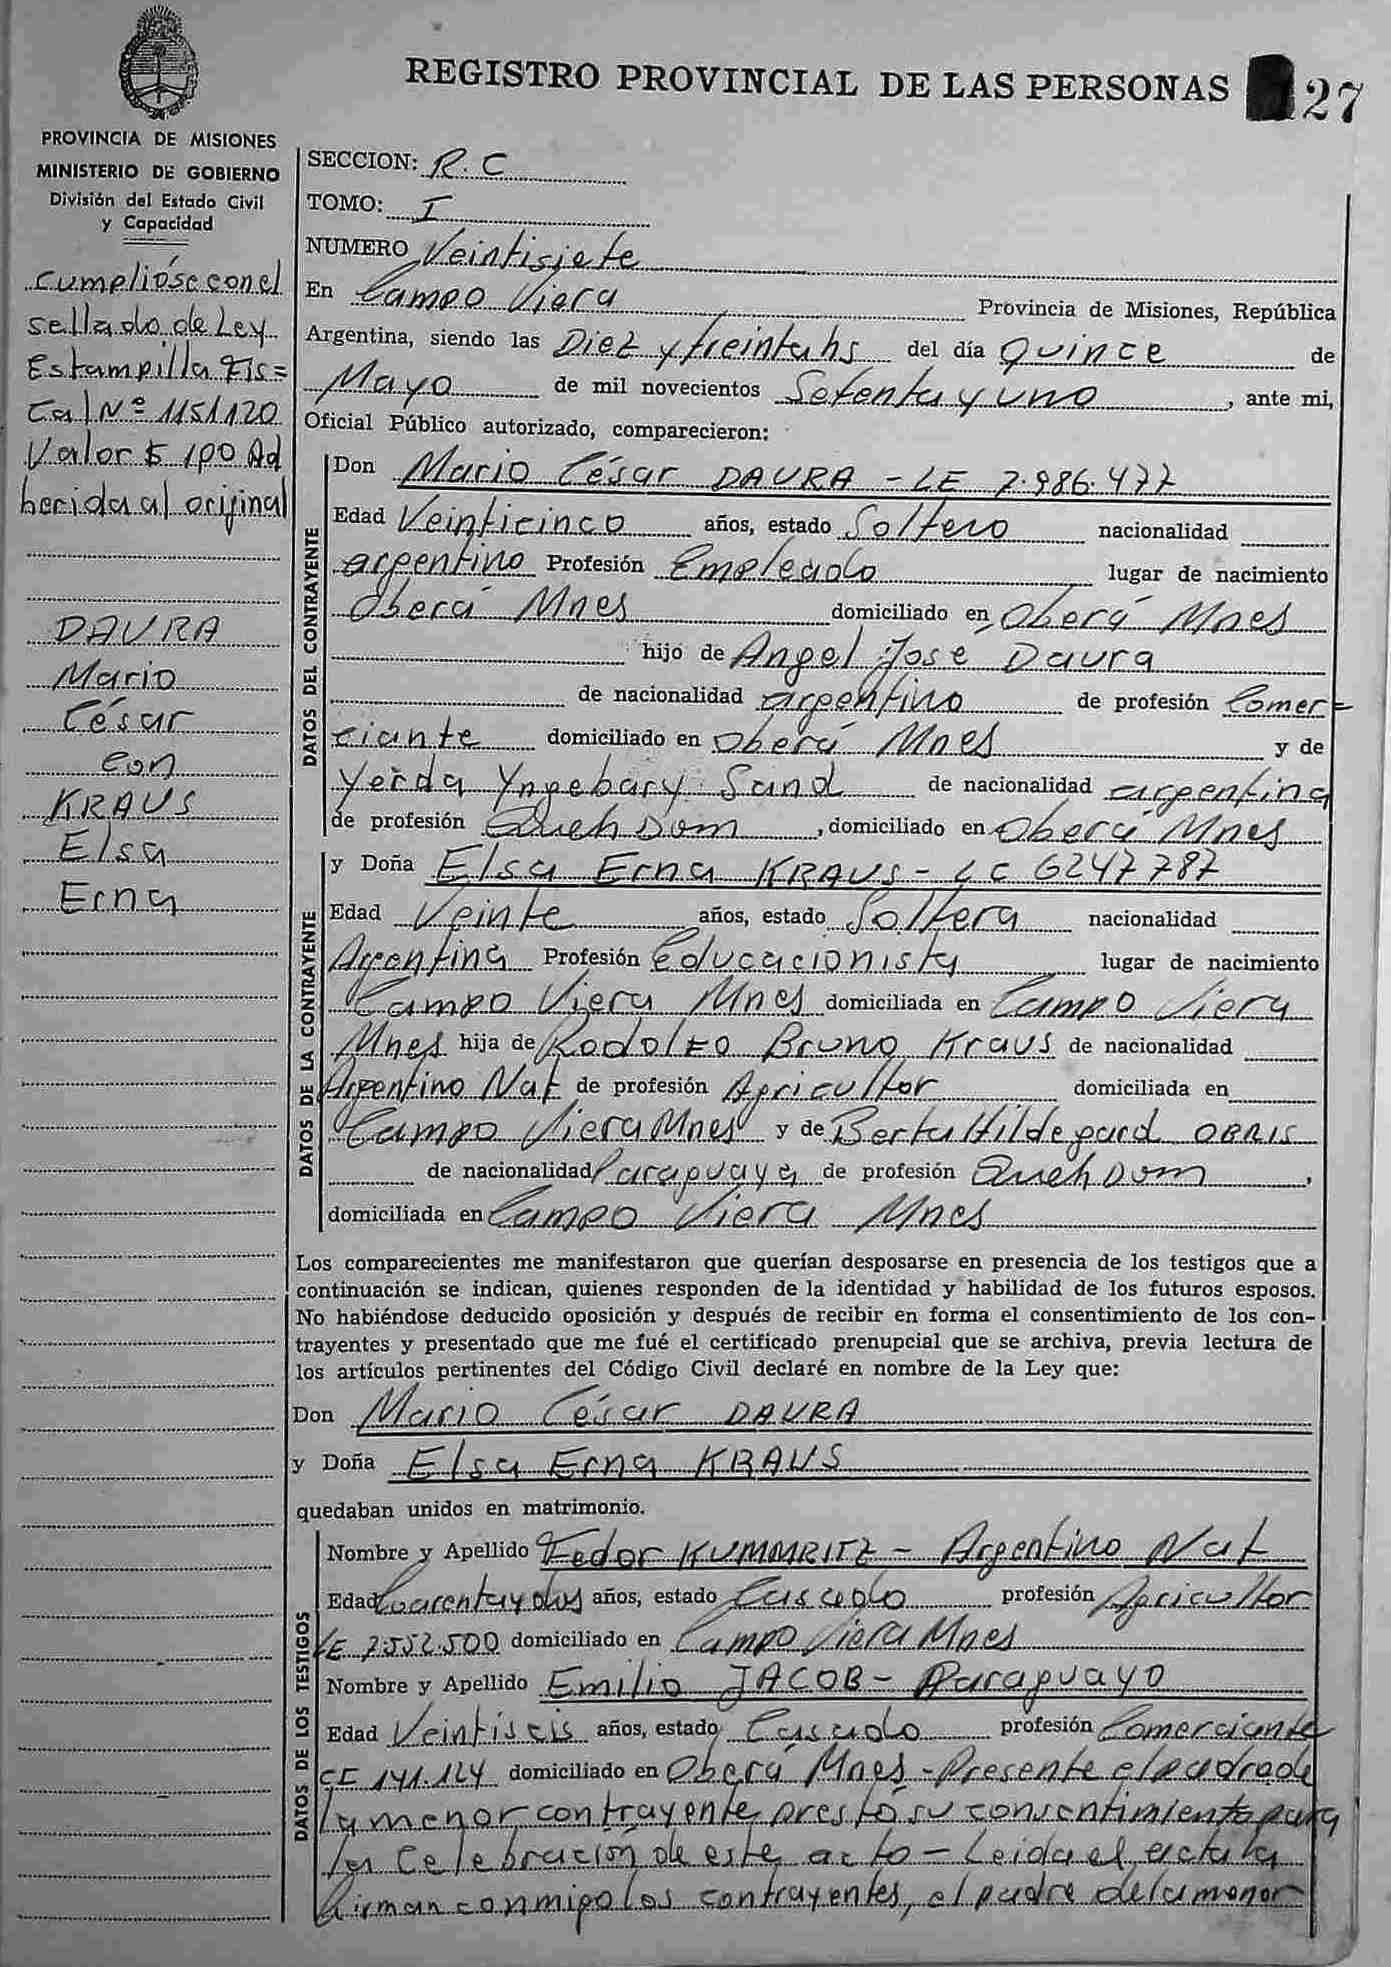 REGISTRO PROVINCIAL DE LAS PERSONAS 27
PROVINCIA DE MISIONES
MINISTERIO DE GOBIERNO
División del Estado Civil
y Capacidad
Cumplióse con el
sellado de Ley
Estampilla Fis=
cal Nº 1151120
Valor $ 100 Ad
herida al original
DAURA
Mario
César
con
KRAUS
Elsa
Erna
SECCION: R.C
TOMO: I
NUMERO Veintisiete
En Campo Viera Provincia de Misiones, República
Argentina, siendo las Diez y treinta hs del día Quince de
Mayo de mil novecientos Setenta y uno, ante mi,
Oficial Público autorizado, comparecieron:
DATOS DEL CONTRAYENTE
Don Mario César DAURA - LE 7.986.477
Edad Veinticinco años, estado Soltero nacionalidad
argentino Profesión Empleado lugar de nacimiento
Oberá Mnes domiciliado en Oberá Mnes
hijo de Angel José Daura
de nacionalidad argentino de profesión Comer=
ciante domiciliado en Oberá Mnes y de
Yerda Yngebary Sand de nacionalidad argentina
de profesión Queh Dom, domiciliado en Oberá Mnes
DATOS DE LA CONTRAYENTE
y Doña Elsa Erna KRAUS - LC 6247787
Edad Veinte años, estado Soltera nacionalidad
Argentina Profesión Educacionista lugar de nacimiento
Campo Viera Mnes domiciliada en Campo Viera
Mnes hija de Rodolfo Bruno Kraus de nacionalidad
Argentino Nat de profesión Agricultor domiciliada en
Campo Viera Mnes y de Berta Hildegard OBRIS
de nacionalidad Paraguaya de profesión Queh Dom,
domiciliada en Campo Viera Mnes
Los comparecientes me manifestaron que querían desposarse en presencia de los testigos que a
continuación se indican, quienes responden de la identidad y habilidad de los futuros esposos.
No habiéndose deducido oposición y después de recibir en forma el consentimiento de los con-
trayentes y presentado que me fué el certificado prenupcial que se archiva, previa lectura de
los artículos pertinentes del Código Civil declaré en nombre de la Ley que:
Don Mario César DAURA
y Doña Elsa Erna KRAUS
quedaban unidos en matrimonio.
DATOS DE LOS TESTIGOS
Nombre y Apellido Fedor KUMMRITZ - Argentino Nat
Edad Cuarenta y dos años, estado Casado profesión Agricultor
LE 7.552.500 domiciliado en Campo Viera Mnes
Nombre y Apellido Emilio JACOB - Paraguayo
Edad Veintiseis años, estado Casado profesión Comerciante
CE 141.124 domiciliado en Oberá Mnes - Presente el padre de
la menor contrayente prestó su consentimiento para
la Celebración de este acto - Leida el acta la
firman conmigo los contrayentes, el padre de la menor